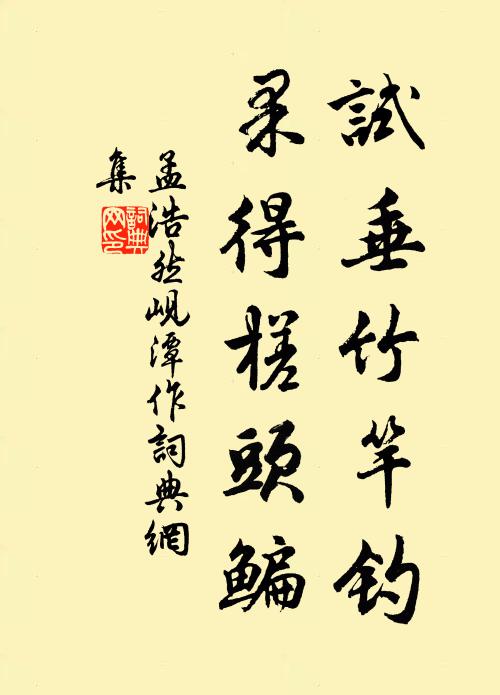 試垂竹竿釣
果得槎頭鯿
孟浩然峴潭作詞典網
集
詞典网印